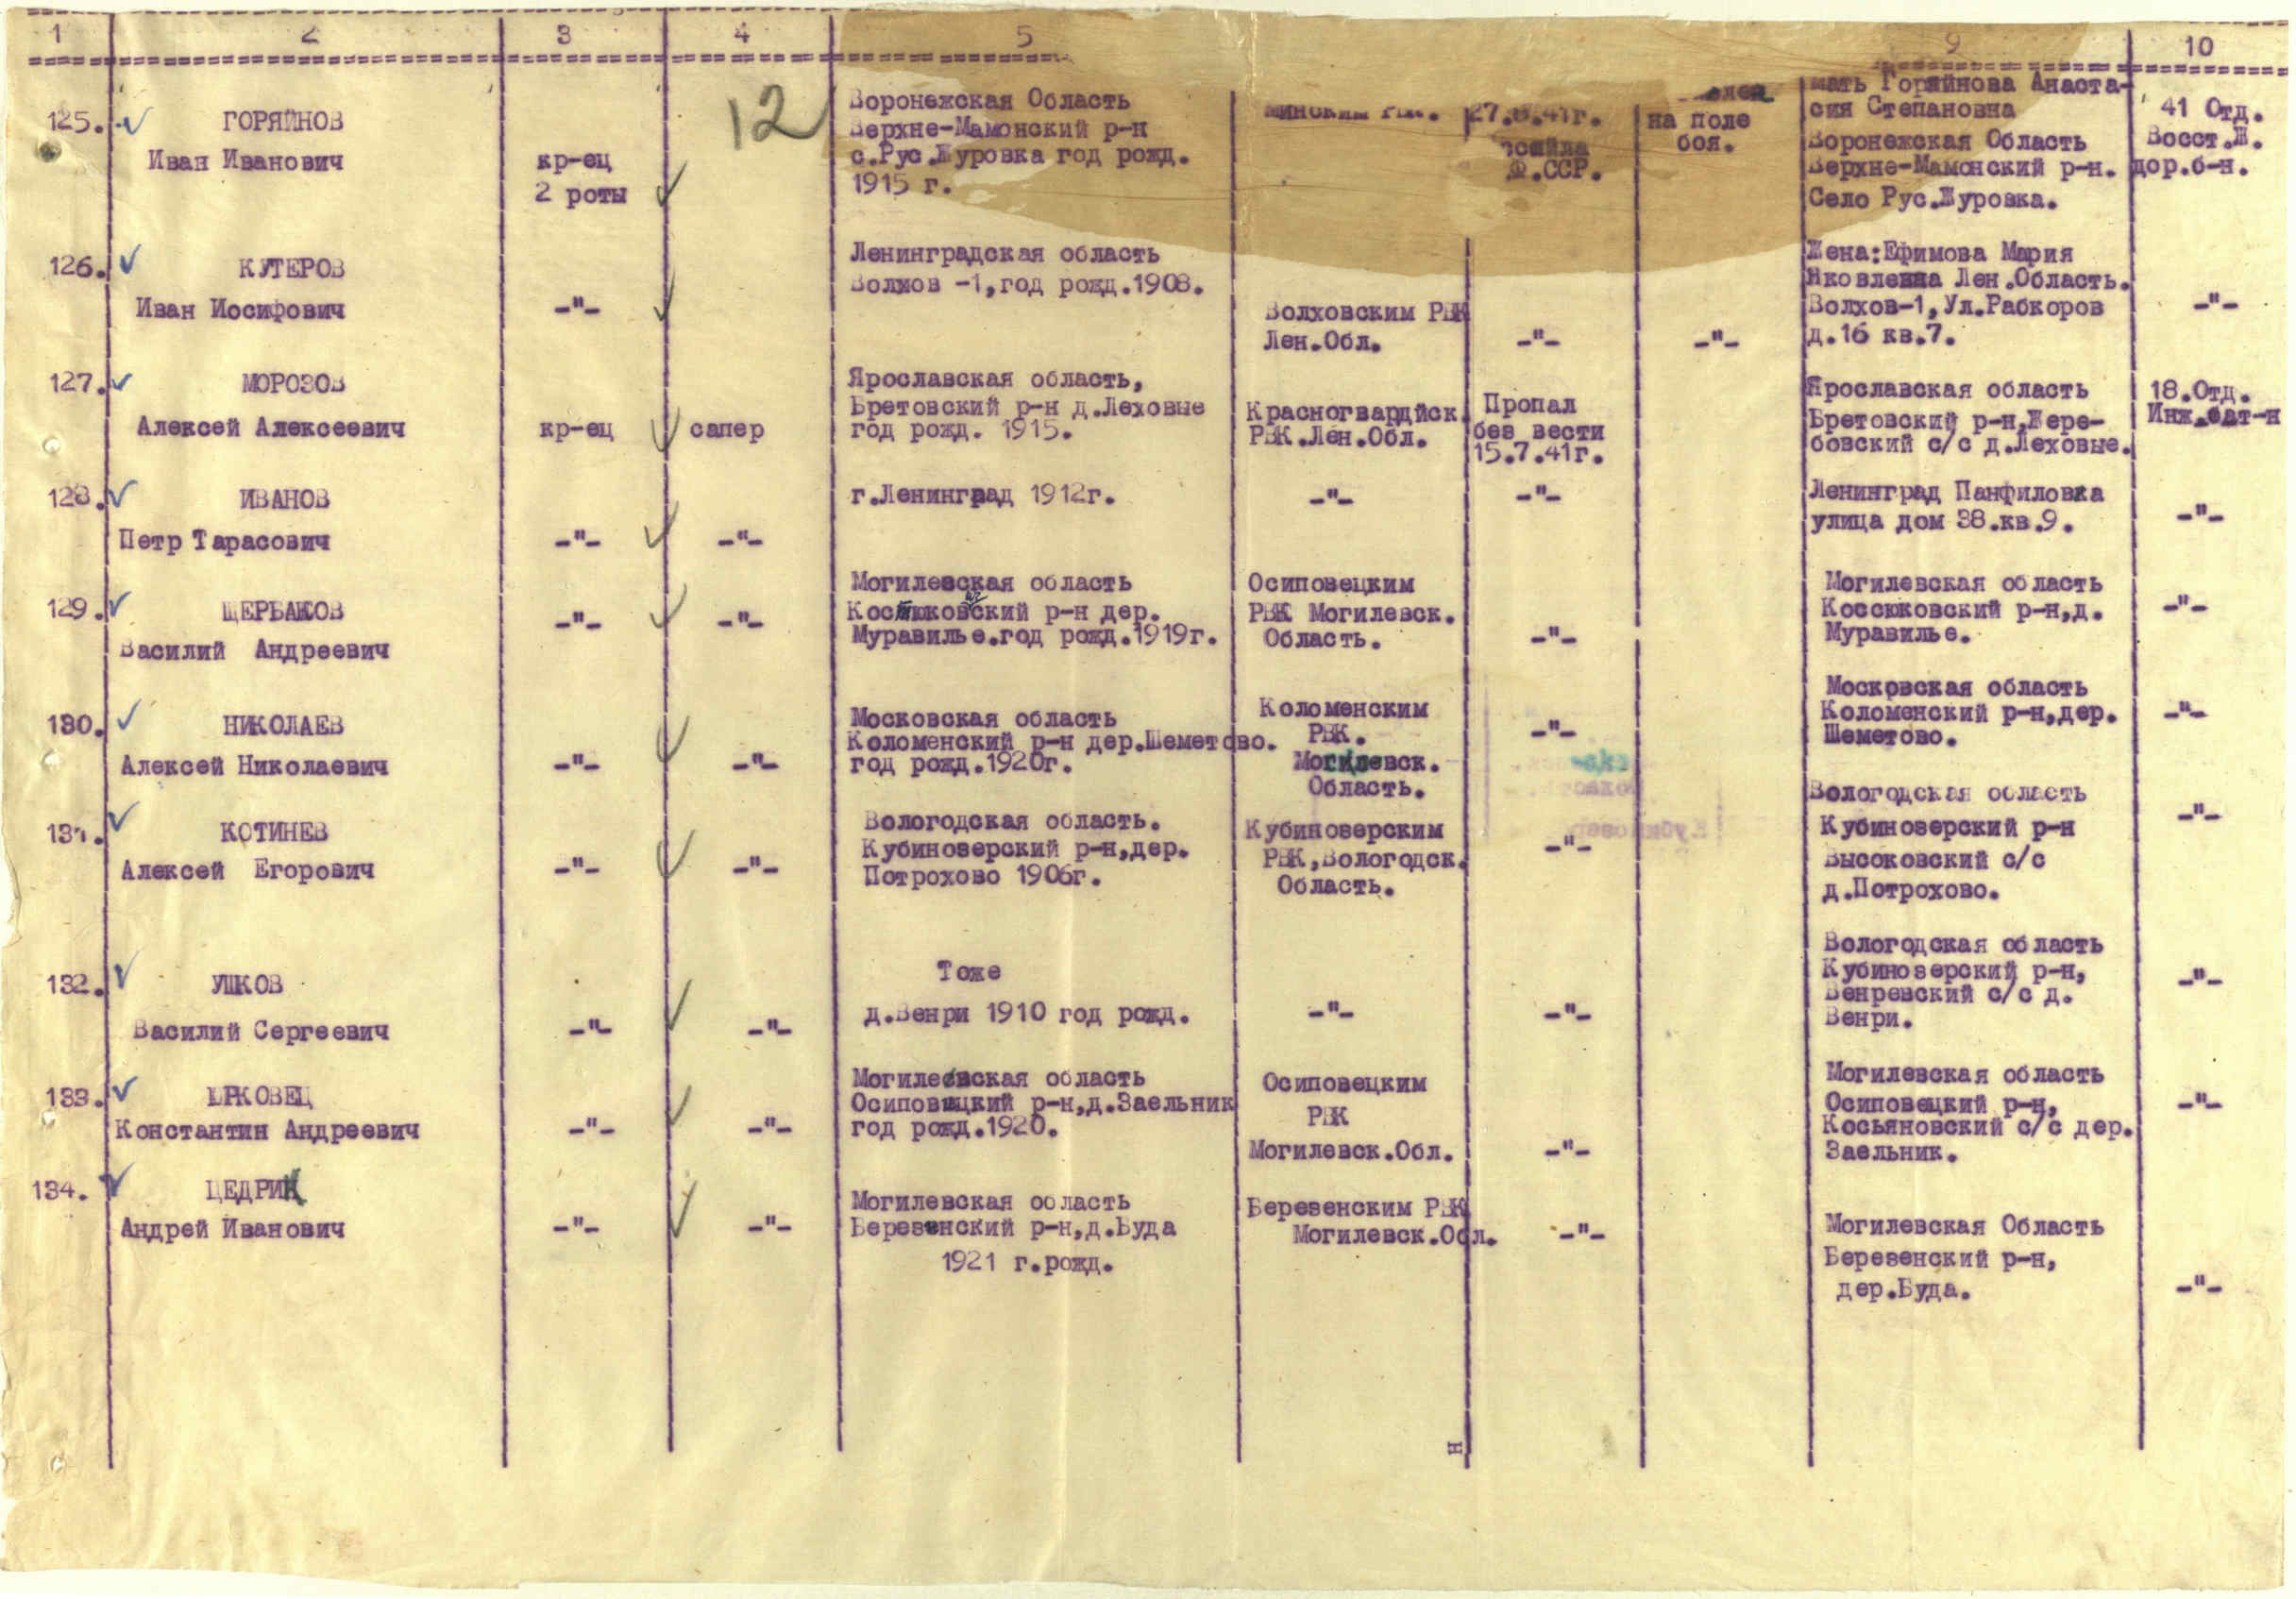 1 2 3 4 5 9 10
125. ГОРЯЙНОВ
Иван Иванович
кр-ец
2 роты
12
Воронежская Область
Верхне-Мамонский р-н
с.Рус.Журовка год рожд.
1915 г.
27.8.41г.
Ф.ССР.
на поле
боя.
мать Горяйнова Анаста-
сия Степановна
Воронежская Область
Верхне-Мамонский р-н.
Село Рус.Журовка.
41 Отд.
Восст.Ж.
дор.б-н.
126. КУТЕРОВ
Иван Иосифович
-"-
Ленинградская область
Волхов -1,год рожд.1908.
Волховским РВК
Лен.Обл.
-"-
-"-
Жена:Ефимова Мария
Яковлевна Лен.Область.
Волхов-1,Ул.Рабкоров
д.16 кв.7.
-"-
127. МОРОЗОВ
Алексей Алексеевич
кр-ец
сапер
Ярославская область,
Бретовский р-н д.Леховые
год рожд. 1915.
Красногвардйск.
РВК.Лен.Обл.
Пропал
без вести
15.7.41г.
Ярославская область
Бретовский р-н,Жере-
бовский с/с д.Леховые.
18.Отд.
Инж.бат-н
128. ИВАНОВ
Петр Тарасович
-"-
-"-
г.Ленинград 1912г.
-"-
-"-
Ленинград Панфиловка
улица дом 38.кв.9.
-"-
129. ЩЕРБАКОВ
Василий Андреевич
-"-
-"-
Могилевская область
Костюковский р-н дер.
Муравилье.год рожд.1919г.
Осиповецким
РВК Могилевск.
Область.
-"-
Могилевская область
Коссюковский р-н,д.
Муравилье.
-"-
130. НИКОЛАЕВ
Алексей Николаевич
-"-
-"-
Московская область
Коломенский р-н дер.Шеметово.
год рожд.1920г.
Коломенским
РВК.
Могилевск.
Область.
-"-
Московская область
Коломенский р-н,дер.
Шеметово.
-"-
131. КОТИНЕВ
Алексей Егорович
-"-
-"-
Вологодская область.
Кубинозерский р-н,дер.
Потрохово 1906г.
Кубинозерским
РВК,Вологодск.
Область.
-"-
Вологодская область
Кубинозерский р-н
Высоковский с/с
д.Потрохово.
-"-
132. УШКОВ
Василий Сергеевич
-"-
-"-
Тоже
д.Венри 1910 год рожд.
-"-
-"-
Вологодская область
Кубинозерский р-н,
Венревский с/с д.
Венри.
-"-
133. ЮРКОВЕЦ
Константин Андреевич
-"-
-"-
Могилевская область
Осиповицкий р-н,д.Заельник
год рожд.1920.
Осиповецким
РВК
Могилевск.Обл.
-"-
Могилевская область
Осиповецкий р-н,
Косьяновский с/с дер.
Заельник.
-"-
134. ЦЕДРИК
Андрей Иванович
-"-
-"-
Могилевская область
Березенский р-н,д.Буда
1921 г.рожд.
Березенским РВК
Могилевск.Обл.
-"-
Могилевская Область
Березенский р-н,
дер.Буда.
-"-
н